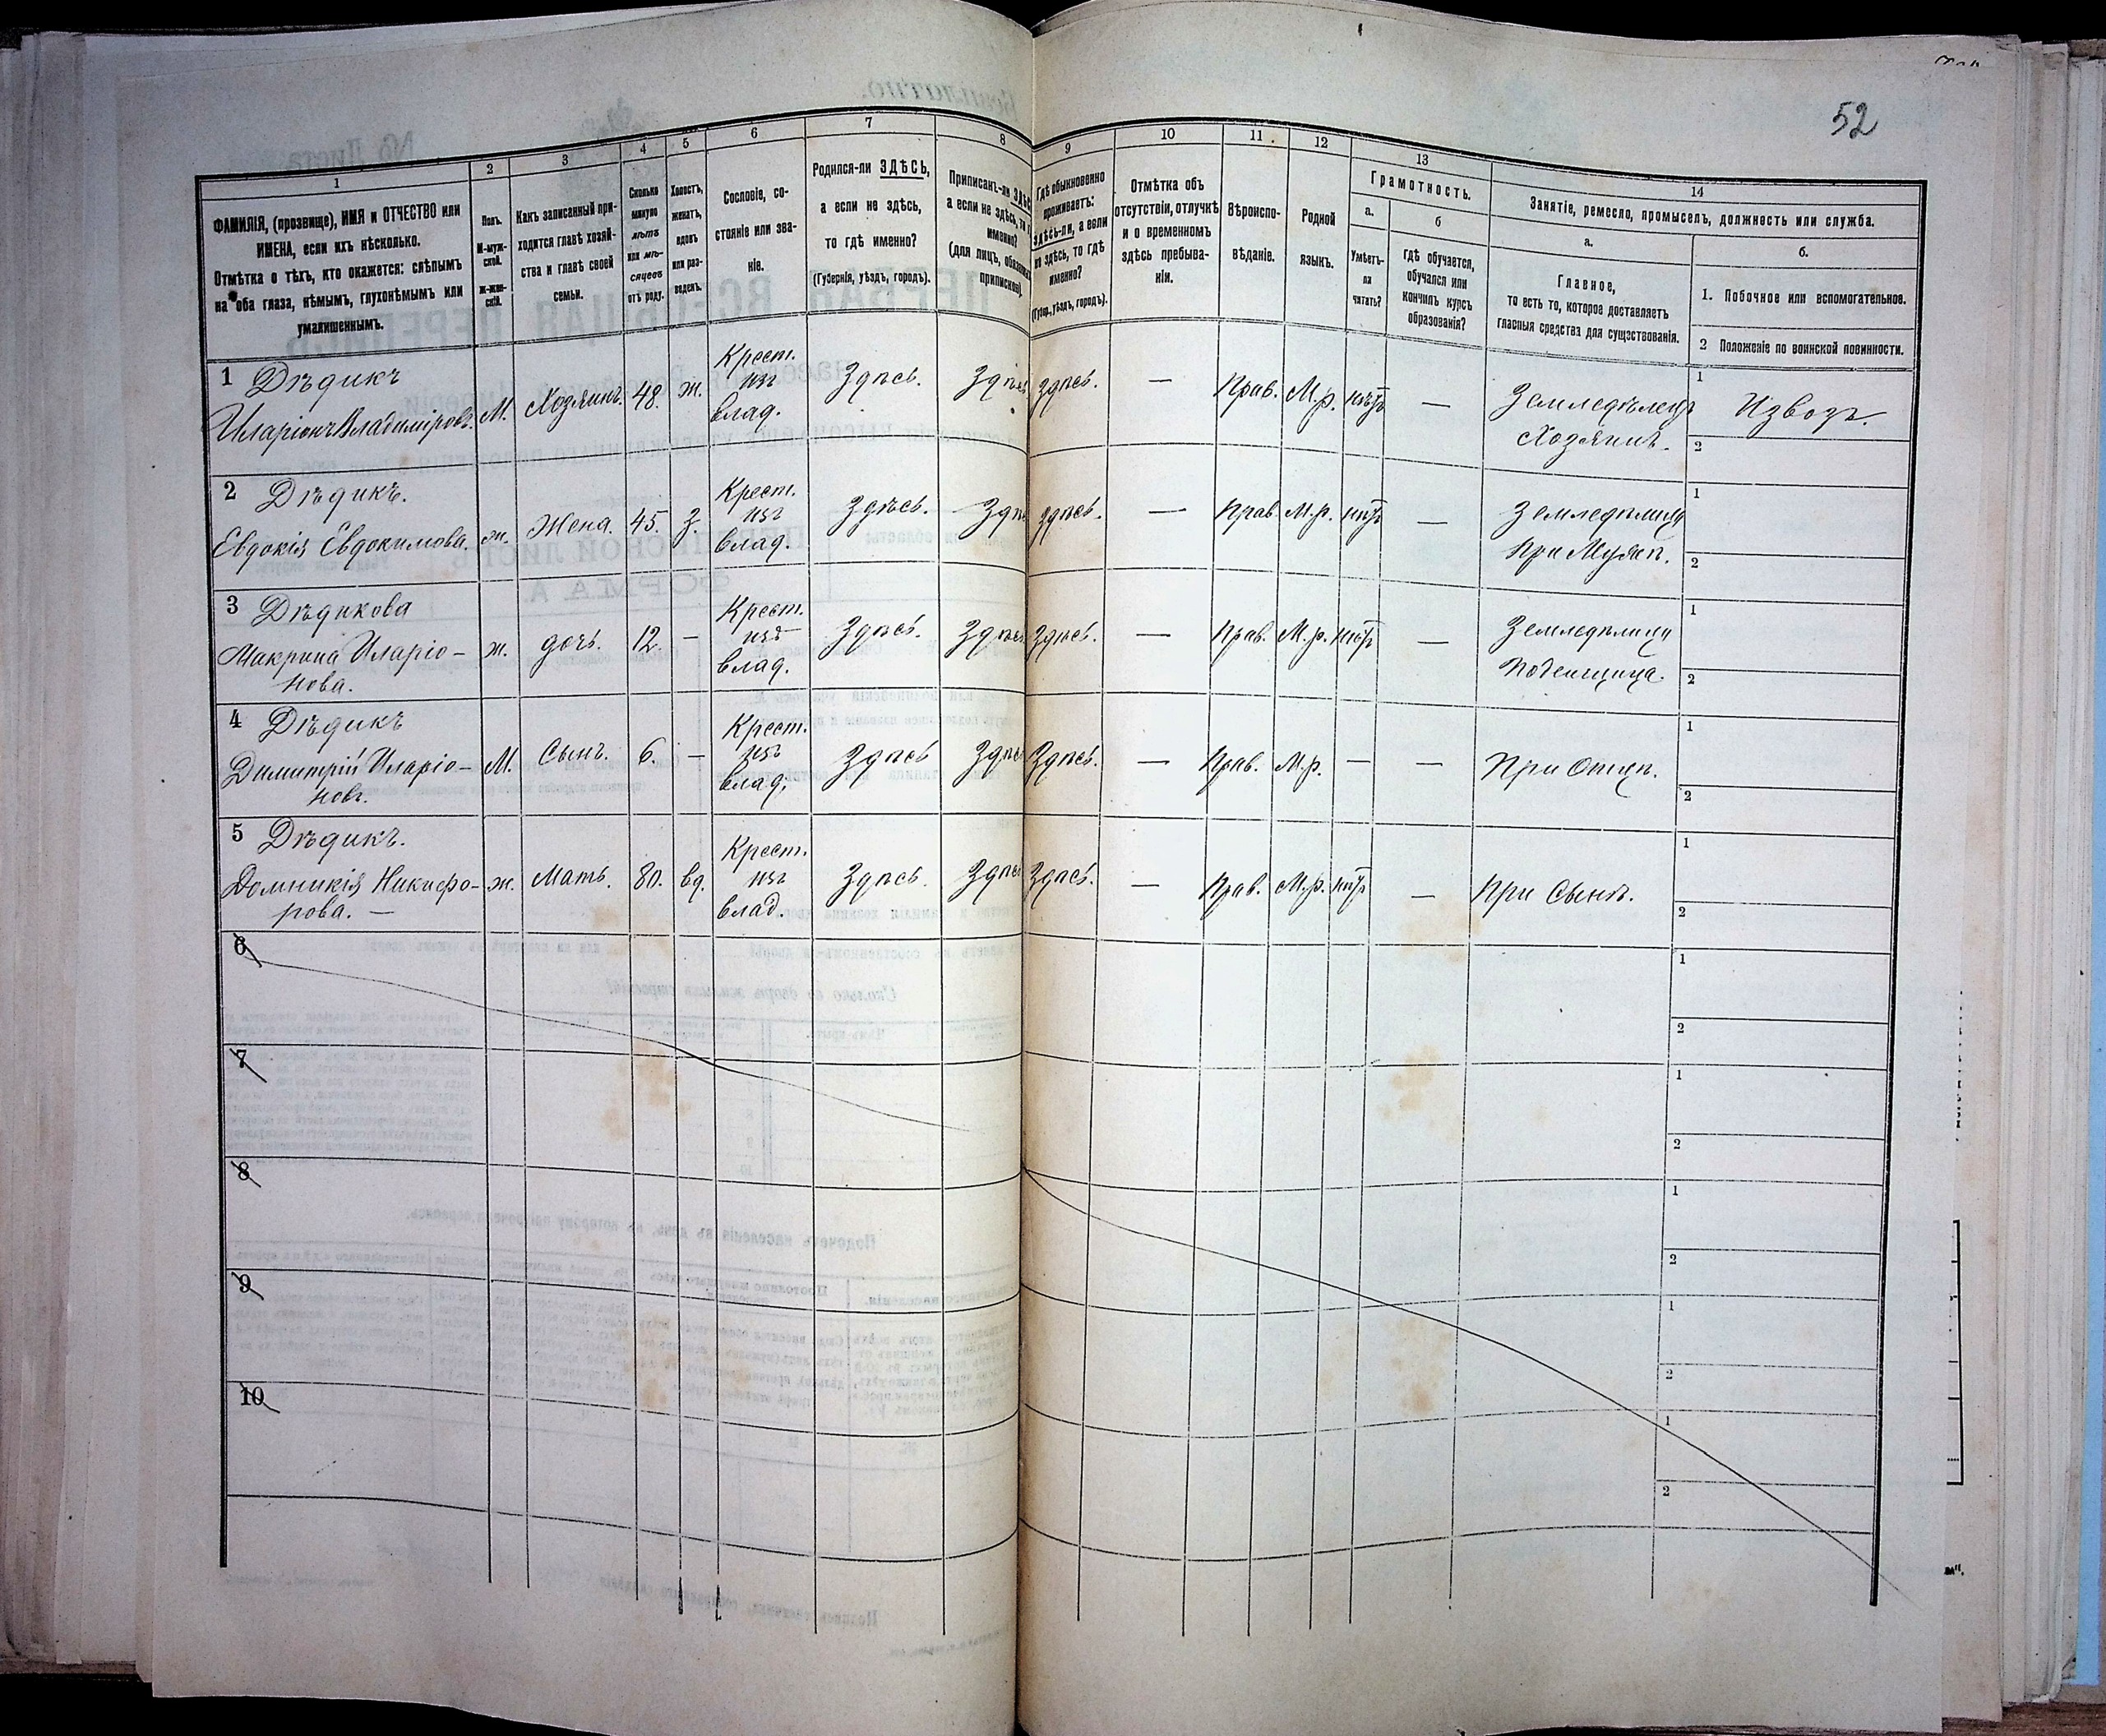 52
1 2 3 4 5 6 7 8 9 10 11 12 13 14
ФАМИЛІЯ, (прозвище), ИМЯ и ОТЧЕСТВО или
ИМЕНА, если ихъ нѣсколько.
Отмѣтка о тѣхъ, кто окажется: слѣпымъ
на оба глаза, нѣмымъ, глухонѣмымъ или
умалишеннымъ.
Полъ.
М-муж-
ской.
Ж-жен-
скій.
Какъ записанный при-
ходится главѣ хозяй-
ства и главѣ своей
семьи.
Сколько
минуло
лѣтъ
или мѣ-
сяцевъ
отъ роду.
Холостъ,
женатъ,
вдовъ
или раз-
веденъ.
Сословіе, со-
стояніе или зва-
ніе.
Родился-ли ЗДѢСЬ,
а если не здѣсь,
то гдѣ именно?
(Губернія, уѣздъ, городъ).
Приписанъ-ли
а если не здѣсь,
именно?
(для лицъ,
Гдѣ обыкновенно
проживаетъ:
здѣсь-ли, а если
не здѣсь, то гдѣ
именно?
(Губер., уѣздъ, городъ).
Отмѣтка объ
отсутствіи, отлучкѣ
и о временномъ
здѣсь пребыва-
ніи.
Вѣроиспо-
вѣданіе.
Родной
языкъ.
Грамотность.
а.
Умѣетъ-
ли
читать?
б
гдѣ обучается,
обучался или
кончилъ курсъ
образованія?
Занятіе, ремесло, промыселъ, должность или служба.
а.
Главное,
то есть то, которое доставляетъ
главныя средства для существованія.
б.
1. Побочное или вспомогательное.
2 Положеніе по воинской повинности.
1 Дѣдикъ
Иларіонъ Владиміровъ. М. Хозяинъ. 48. ж. Крест. изъ влад. Здѣсь. Здѣсь здѣсь. — Прав. М.р. нѣтъ — Земледѣлецъ Хозяинъ. 1 Извозъ.
2
2 Дѣдикъ.
Евдокія Евдокимова. ж. Жена. 45. з. Крест. изъ влад. Здѣсь. здѣсь. — Прав. М.р. нѣтъ — При Мужѣ. 1
2
3 Дѣдикова
Макрина Иларіо-
нова. ж. дочь. 12. — Крест. изъ влад. Здѣсь. Здѣсь Здѣсь. — Прав. М.р. нѣтъ — Поденщица. 1
2
4 Дѣдикъ
Димитрій Иларіо-
новъ. М. Сынъ. 6. — Крест. изъ влад. Здѣсь Здѣсь. — Прав. М.р. — — При Отцѣ. 1
2
5 Дѣдикъ.
Домникія Никифо-
рова. — ж. Мать. 80. вд. Крест. изъ влад. Здѣсь. Здѣсь. — Прав. М.р. нѣтъ — При Сынѣ. 1
2
6 1
2
7 1
2
8 1
2
9 1
2
10 1
2